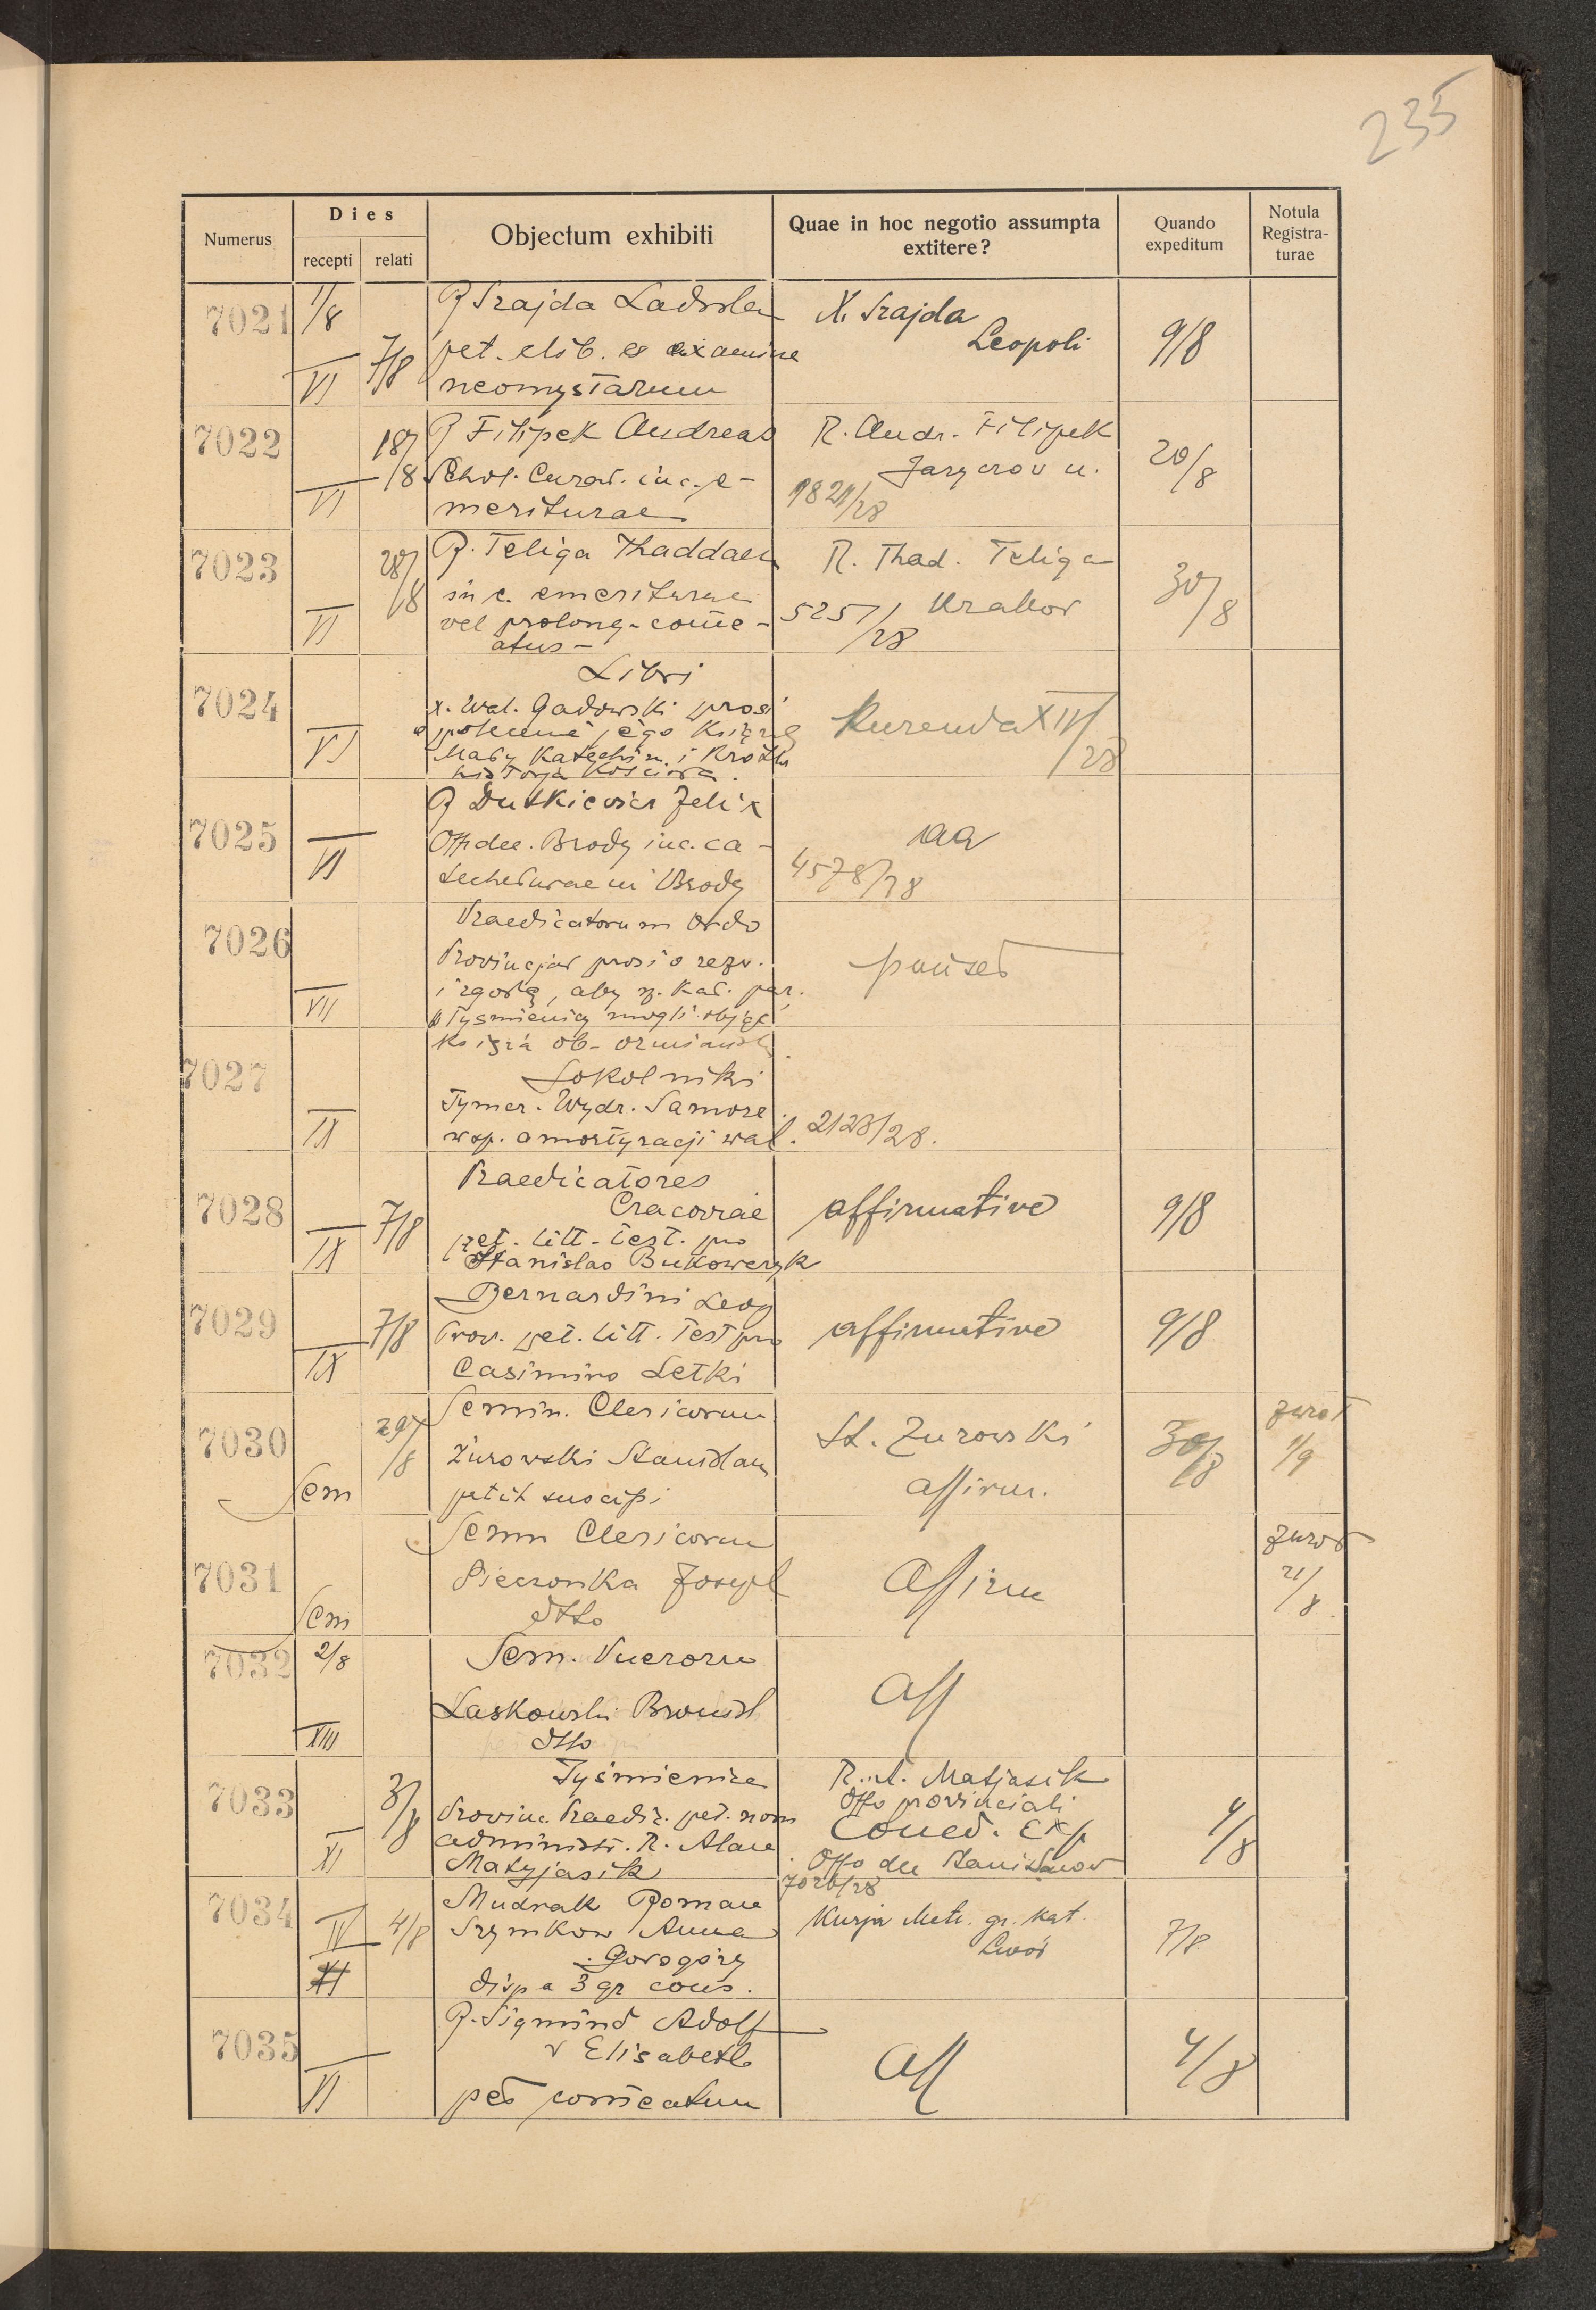 235
Numerus
Dies
recepti
relati
Objectum exhibiti
Quae in hoc negotio assumpta
extitere?
Quando
expeditum
Notula
Registra-
turae
7021
1/8
VI
7/8
R Szajda Ladisla
pet. elib. ex examine
neomystarum
X. Szajda
Leopoli
9/8
7022
VI
18/8
R Filipek Andreas
Schol. Curat. in c. e-
meriturae
R. Andr. Filipek
Jaryczov n.
1821/28
20/8
7023
VI
28/8
R. Teliga Thaddaeu
in c. emeriturae
vel prolong. come-
atus -
R. Thad. Teliga
5251/28 Krakov
30/8
7024
VI
Libri
x. Wal. Gadowski prosi
o polecenie jego Książek
Mały Katechizm i Krótka
historja Kościoła.
Kurenda XIV/28
7025
VI
R Dutkiewicz Felix
Offi dec. Brody in c. ca-
techeturae in Brody
aa
4578/28
7026
VII
Praedicatorum Ordo
Prowincjał prosi o zezw.
i zgodę, aby rz. kat. par.
w Tyśmienicy mogli objąć
księża ob. ormiańsk.
7027
IX
Sokolniki
Tymcz. Wydz. Samorz.
w sp. amortyzacji wal.
2128/28.
7028
IX
7/8
Praedicatores
Cracoviae
pet. litt. test. pro
Stanislao Bukowczyk
affirmative
9/8
7029
IX
7/8
Bernardini Leop
Prov. pet. litt. Test pro
Casimiro Letki
affirmative
9/8
7030
Sem
29/8
Semin. Clericorum
Żurowski Stanislau
petit suscipi
St. Żurowski
affirm.
30/8
zwrot
1/9
7031
Sem
Semin Clericorum
Pieczonka Joseph
dtto
Affirm
zwrot
21/8
7032
2/8
XIII
Sem. Puerorum
Laskowski Bronisl
dtto
Aff
7033
XI
3/8
Tyśmienica
Provinc. Praedic. pet. nom
administr. R. Alano
Matyjasik
R. A. Matjasik
Offo provinciali
Coned. Exp
Offo dec Stanislavov
7026/28
4/8
7034
IV
XI
4/8
Mudrak Roman
Szymkow Anna
Gorogóry
disp a 3 gr cons.
Kurja Metr. gr. kat.
Lwów
7/8
7035
VI
R. Sigmund Adolf
v Elisabeth
pet comeatum
Aff
4/8